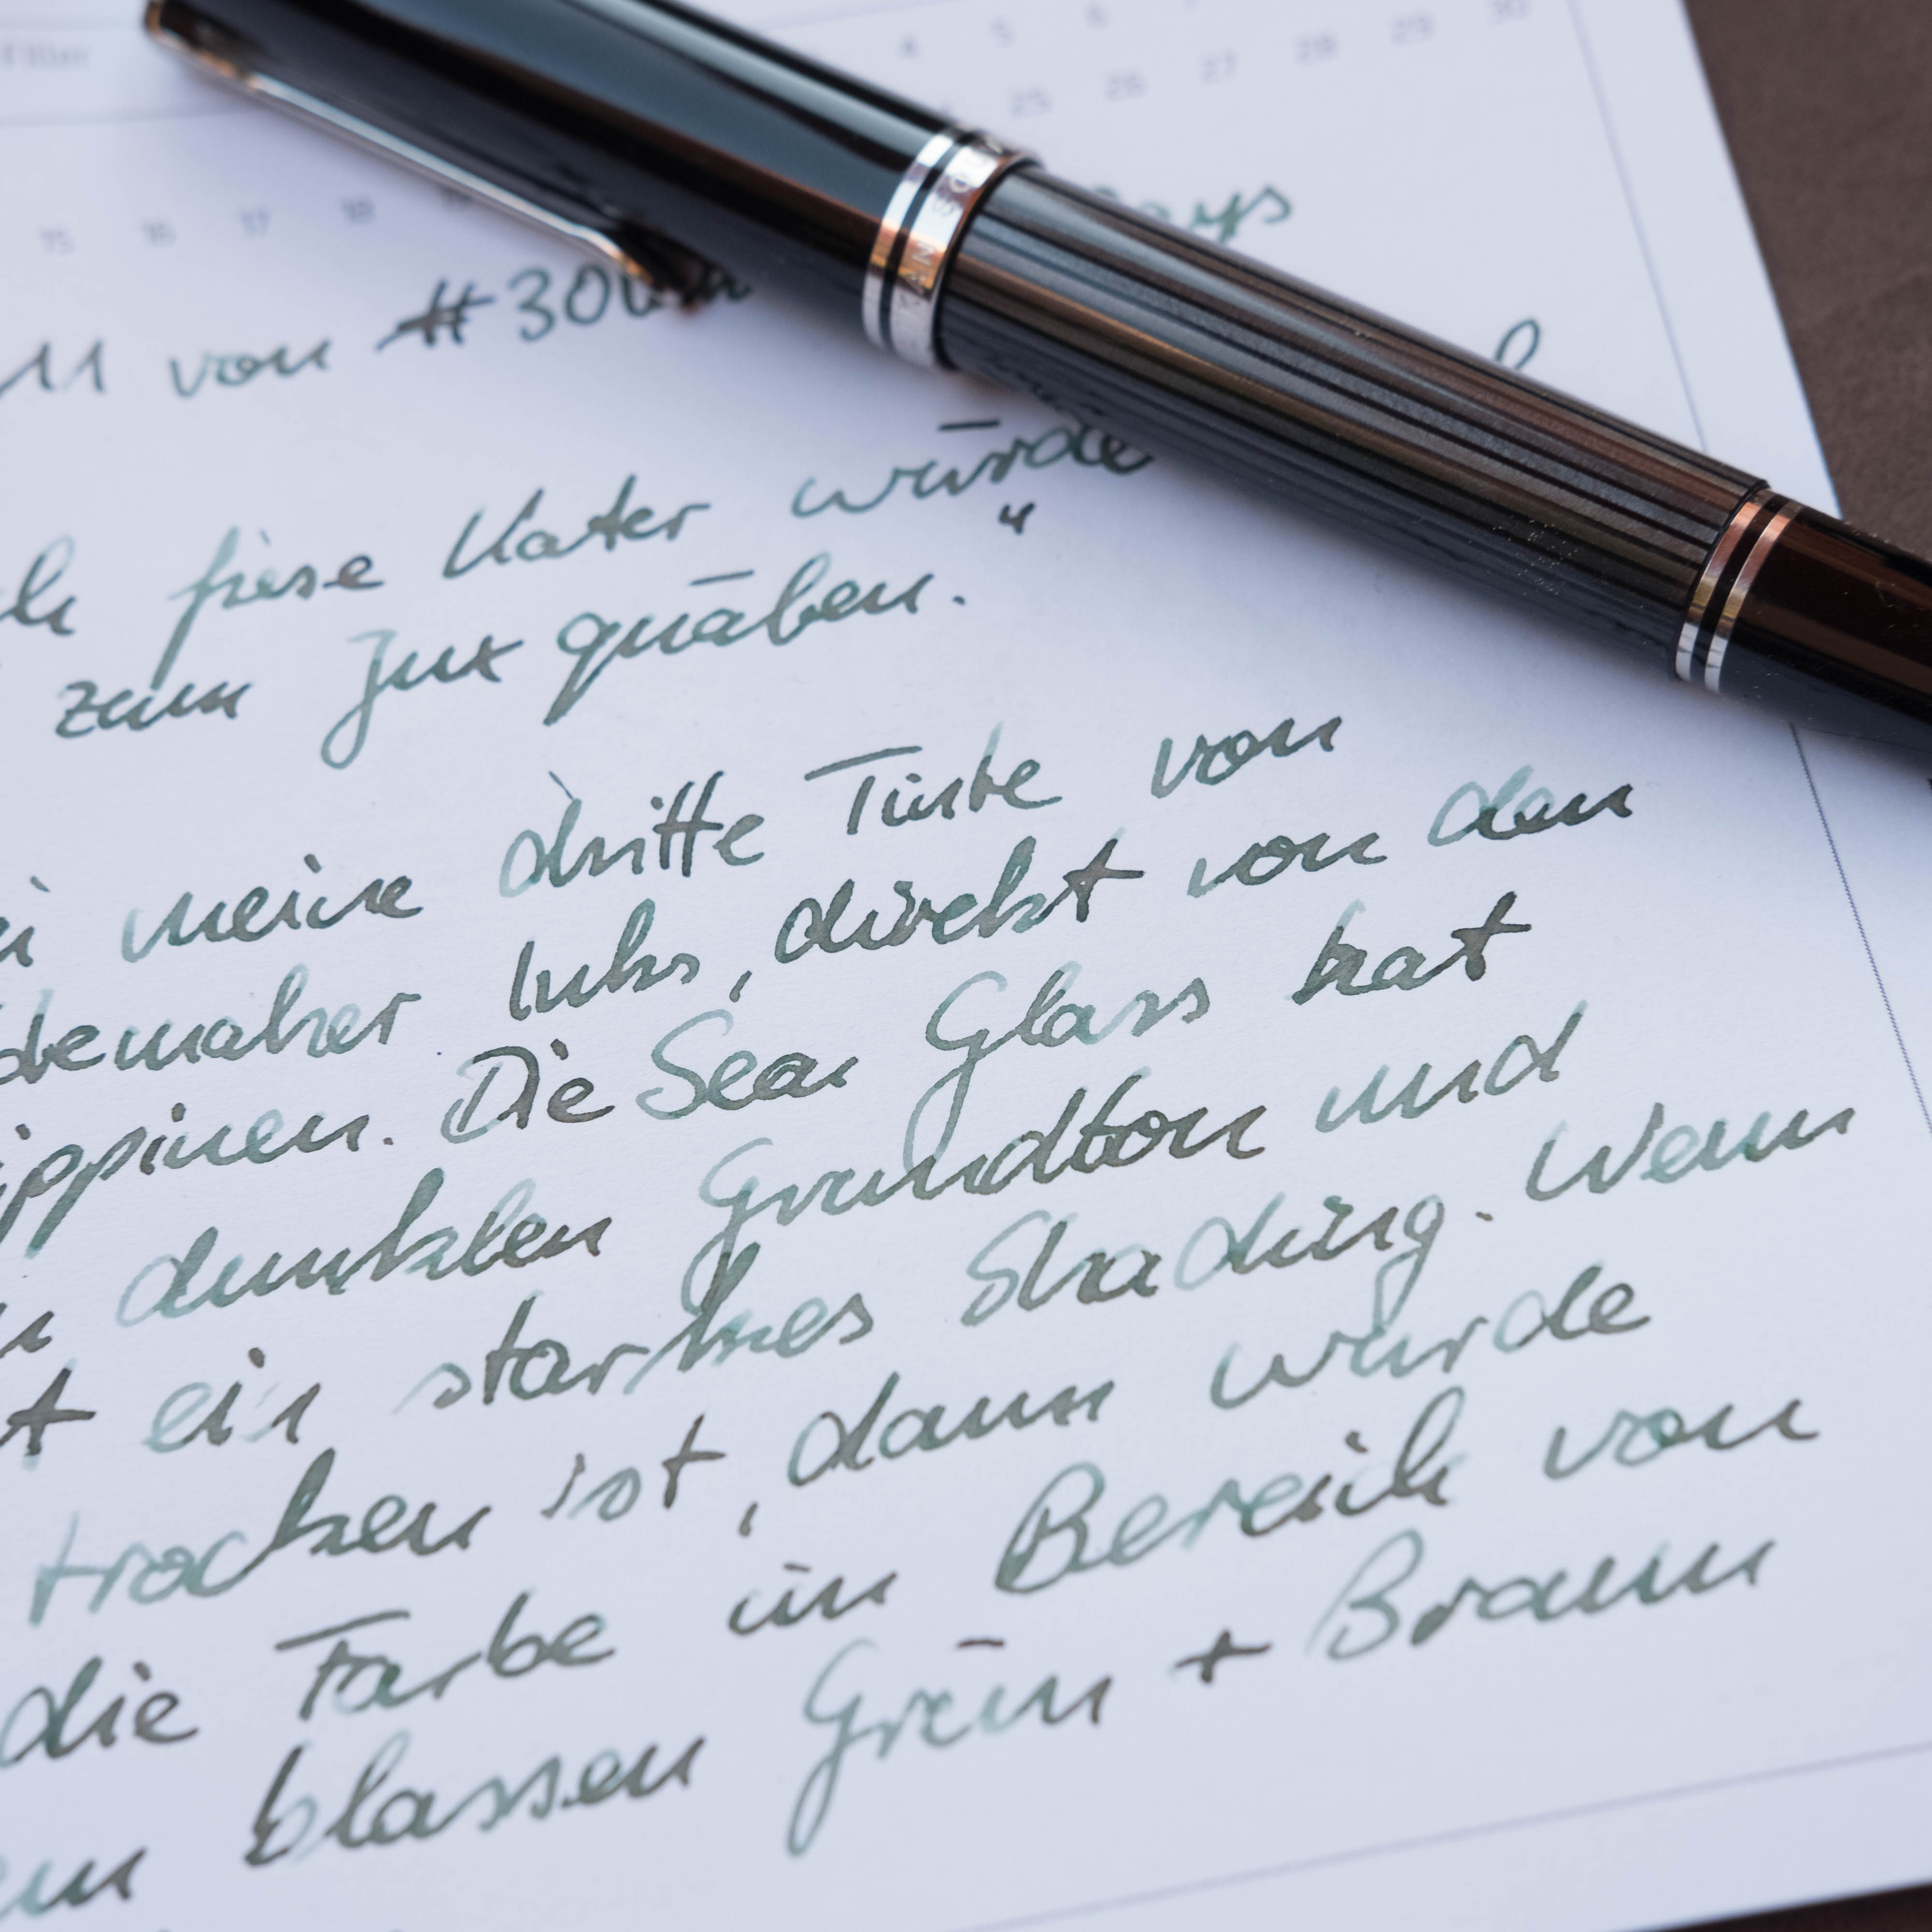 Filler 4 5 6 7
25 26 27 28 29 30
15 16 17 18
SOUV
AN
von #30
fiese Kater würde
zum Jux quäben."
meine dritte Tinte von
Inks, direkt von den
Die Sea Glass hat
dunklen Grundton und
ein starkes Shading. Wenn
trocken ist, dann würde
die Farbe im Bereich von
blassen Grün + Braun